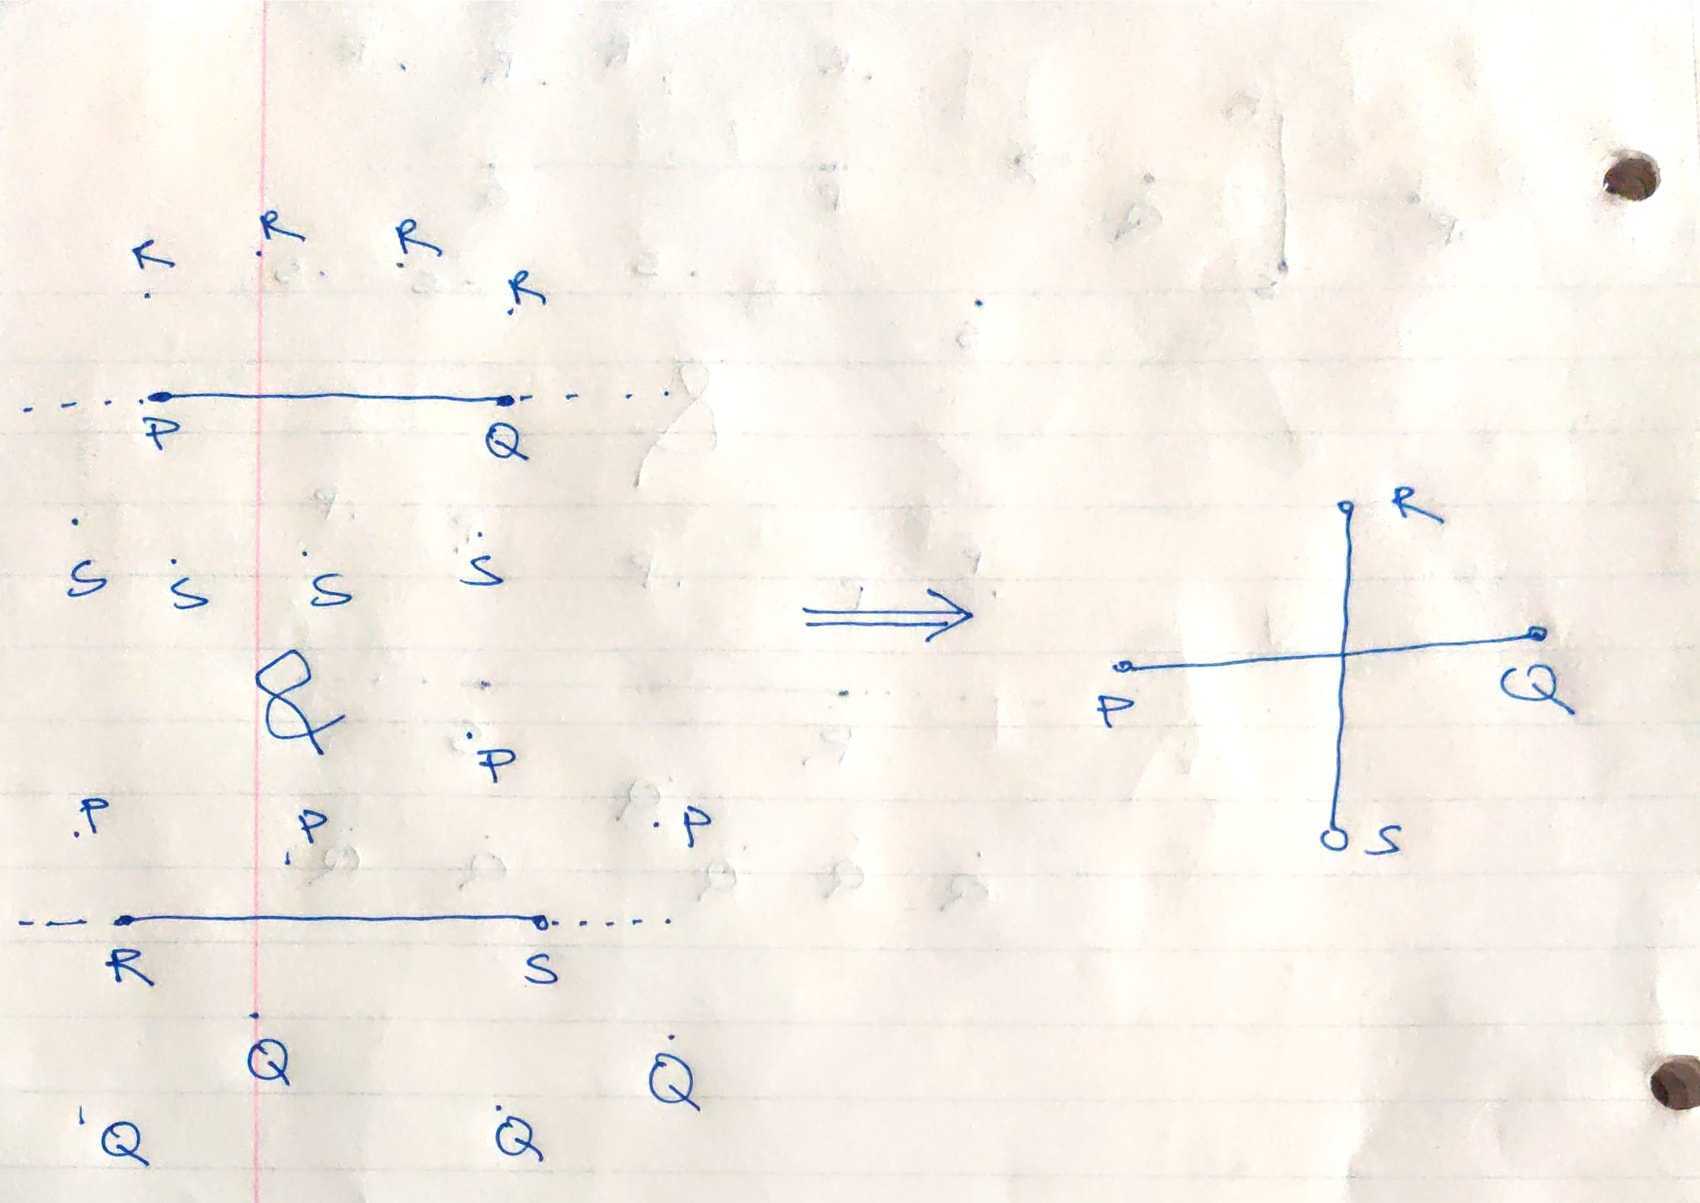 R R R R
P Q
S S S S
&
P P P P
R S
Q Q Q Q
⇒
R
P Q
S